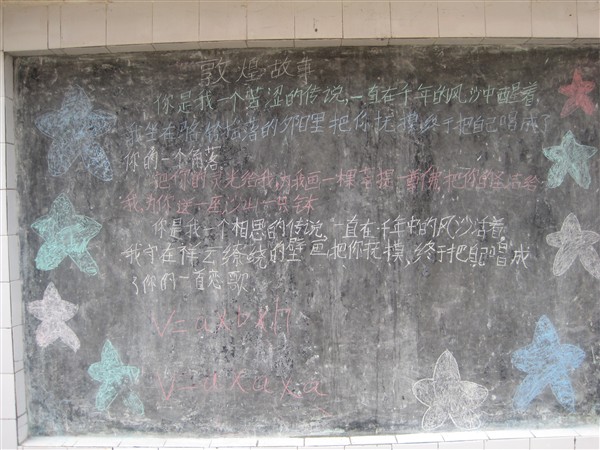 敦煌故事
你是我一个苦涩的传说,一直在千年的风沙中醒着,
我坐在 你 落的夕阳里把你抚摸终于把自己唱成了
你的一个角落。
把你的灵光给我,为我画一棵菩提 把你的 给
我,为你送一座沙山
你是我一个相思的传说,一直在千年中的风沙活着,
我守在祥云缭绕的壁画把你抚摸、终于把自己唱成
了你的一首恋歌.
V=axbxh
V=axaxa